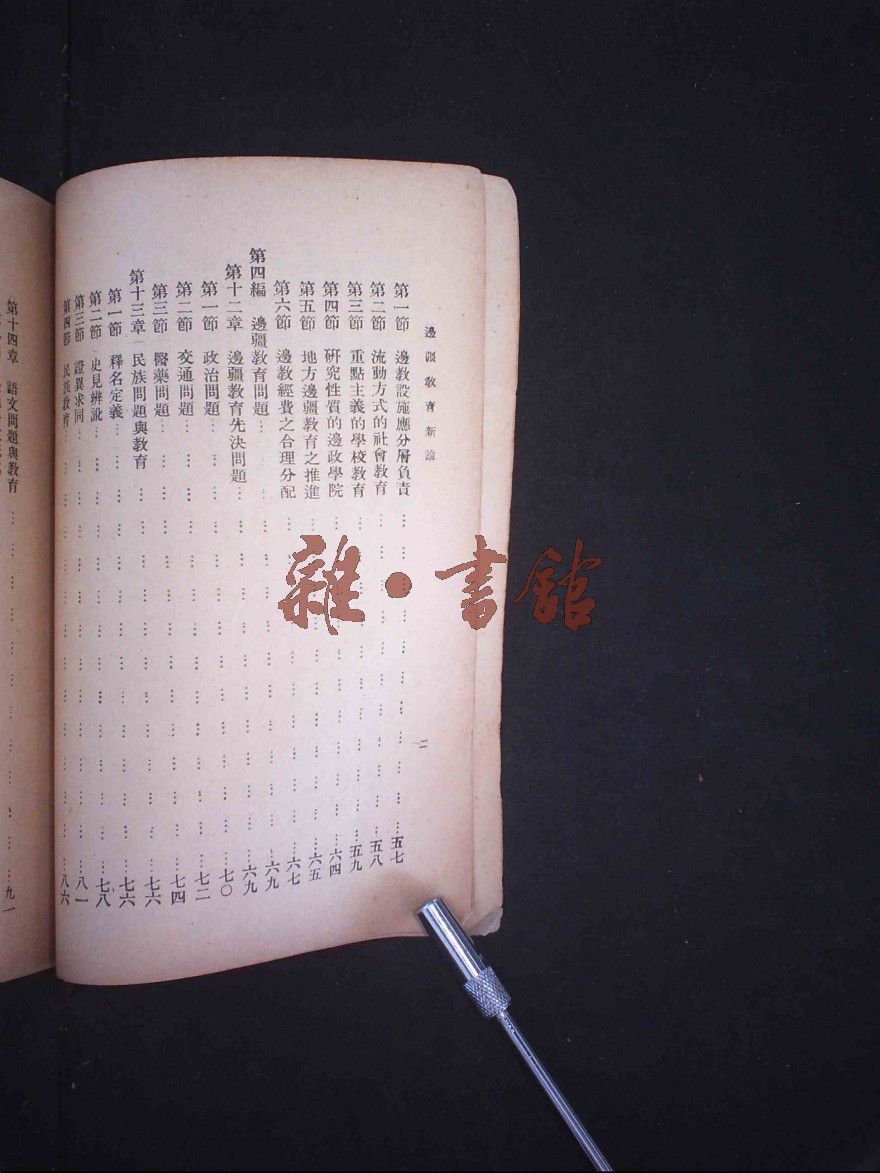 邊疆教育新論
二
第一節 邊教設施應分層負責……五七
第二節 流動方式的社會教育……五八
第三節 重點主義的學校教育……五九
第四節 研究性質的邊政學院……六四
第五節 地方邊疆教育之推進……六五
第六節 邊教經費之合理分配……六七
第四編 邊疆教育問題……六九
第十二章 邊疆教育先決問題……六九
第一節 政治問題……七〇
第二節 交通問題……七二
第三節 醫藥問題……七四
第十三章 民族問題與教育……七六
第一節 釋名定義……七六
第二節 史見辨訛……七八
第三節 證異求同……八一
第四節 民族教育……八六
第十四章 語文問題與教育……九一
雜·書館